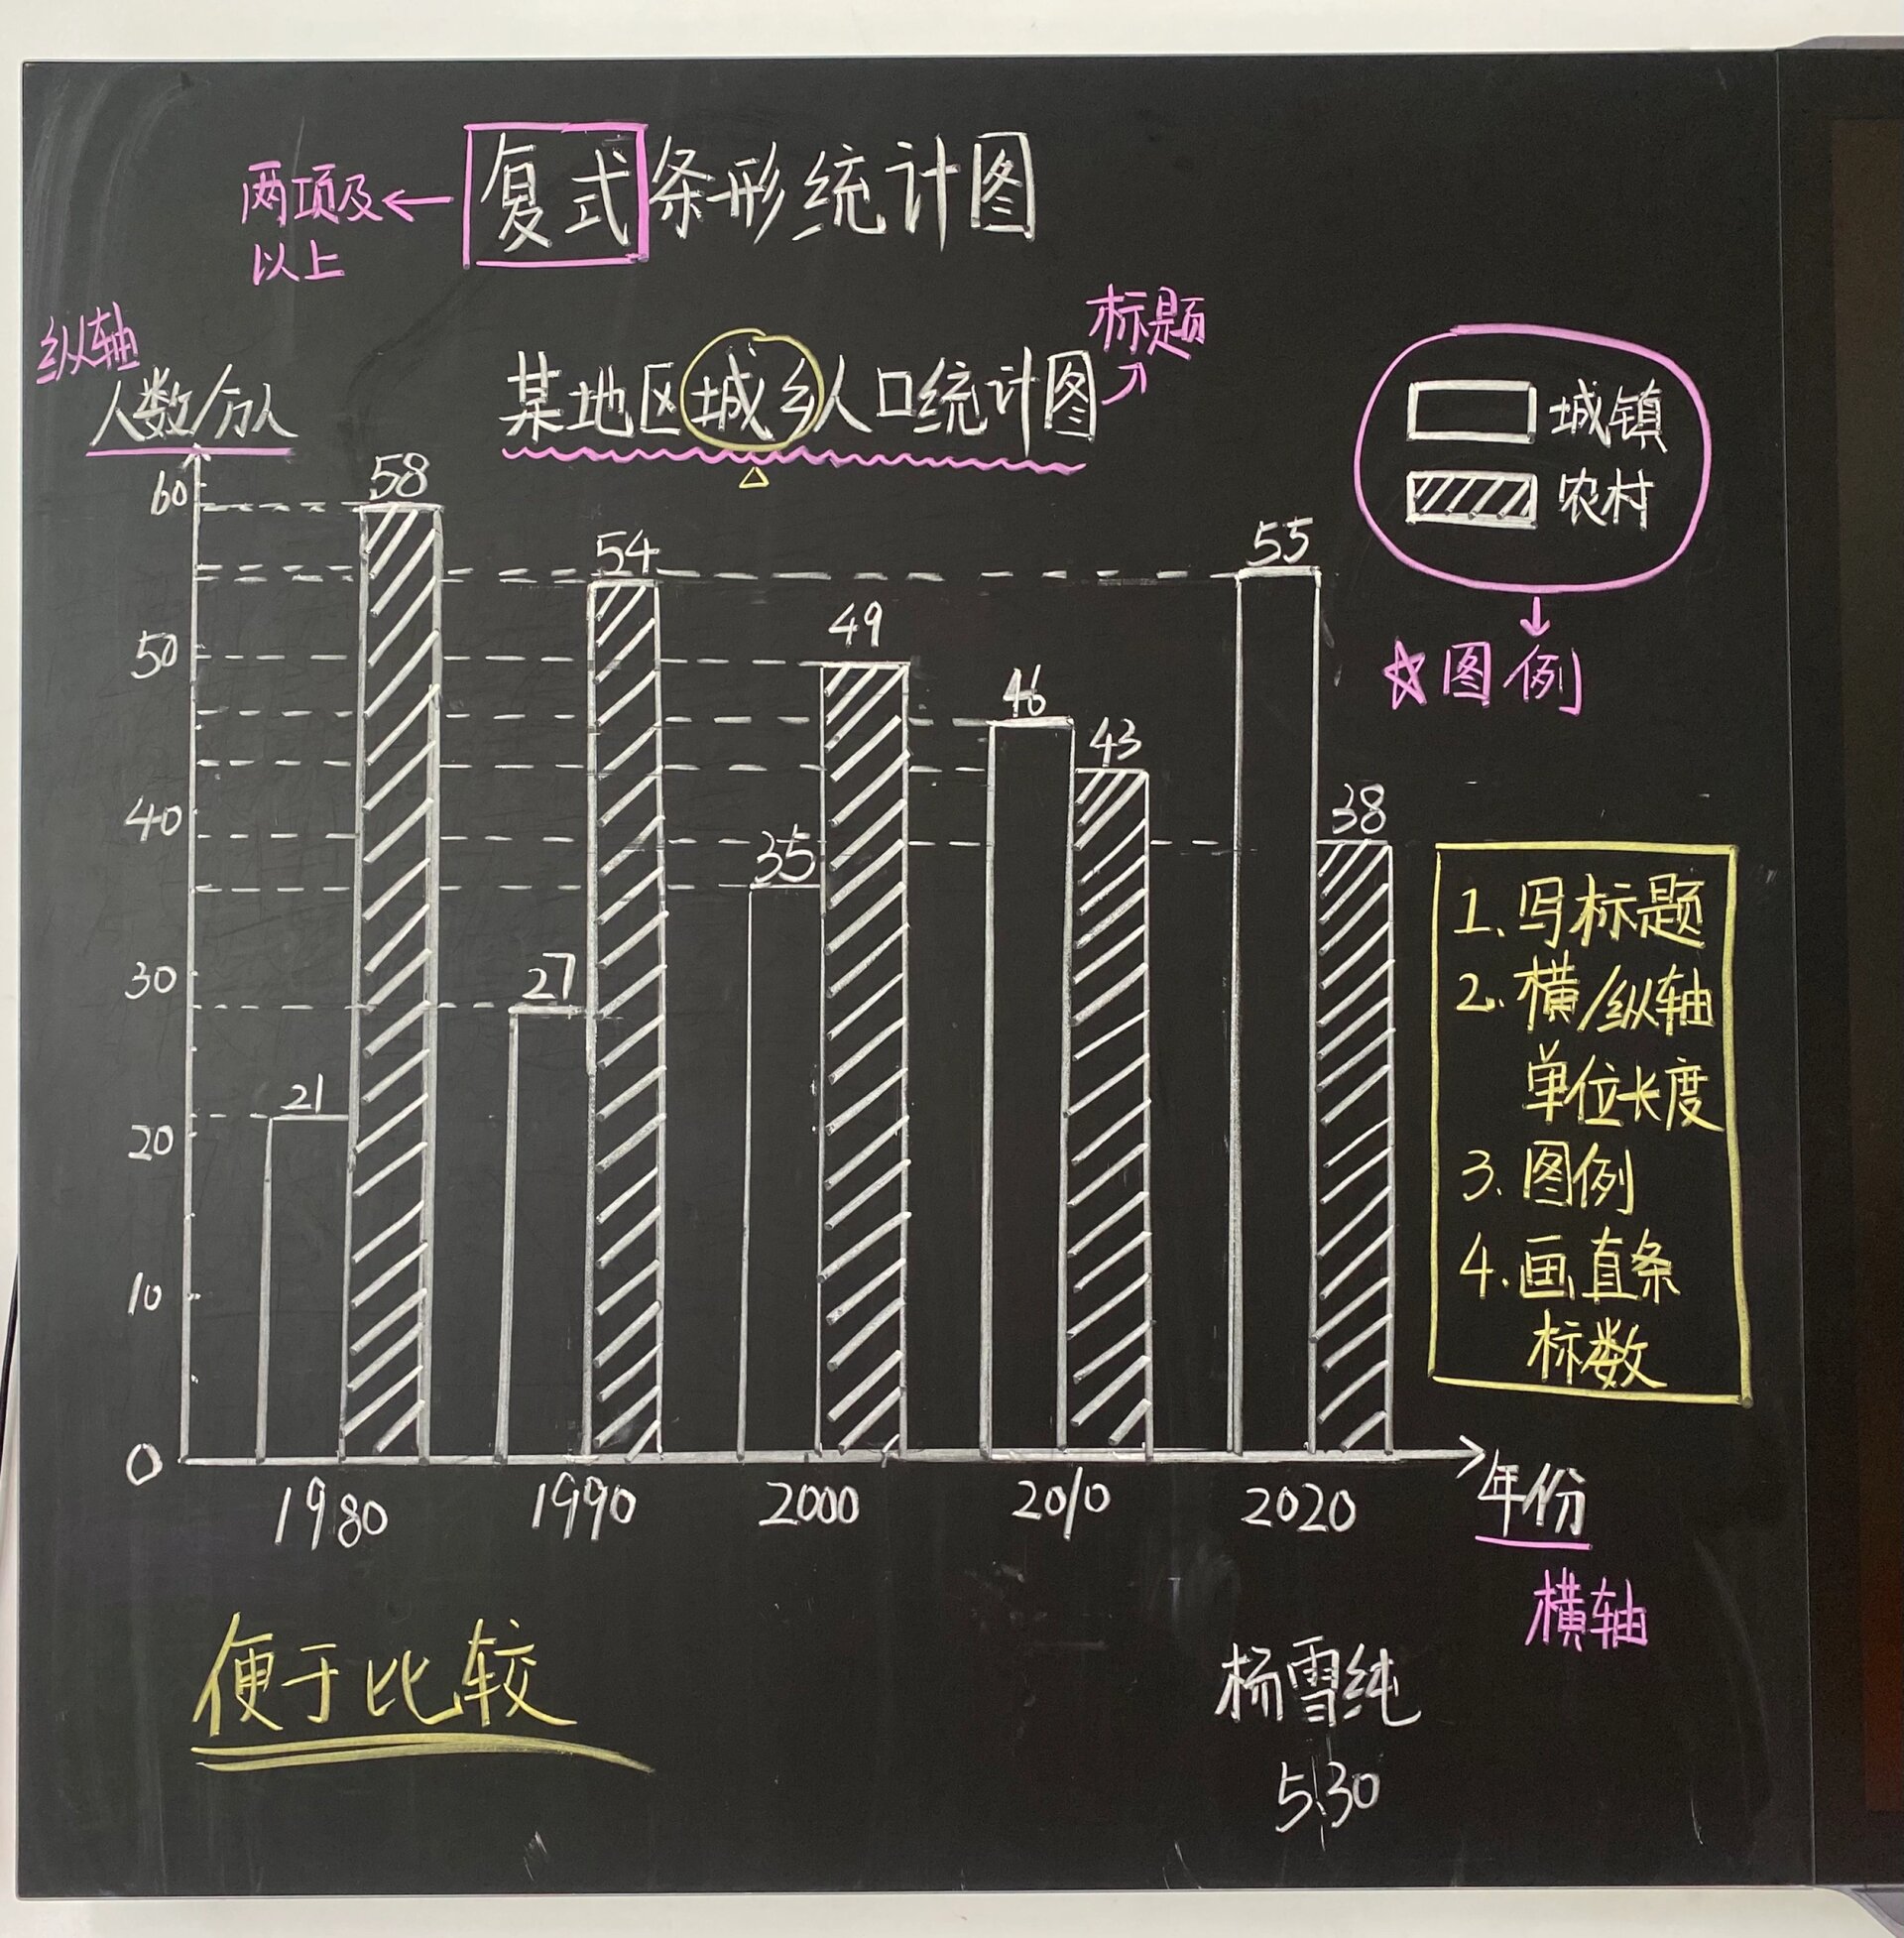 复式条形统计图
两项及
以上
纵轴
人数/万人
某地区城乡人口统计图
标题
城镇
农村
图例
60
50
40
30
20
10
0
21
58
27
54
35
49
46
43
55
38
1980
1990
2000
2010
2020
年份
横轴
1. 写标题
2. 横/纵轴
单位长度
3. 图例
4. 画直条
标数
便于比较
杨雪纯
5|30